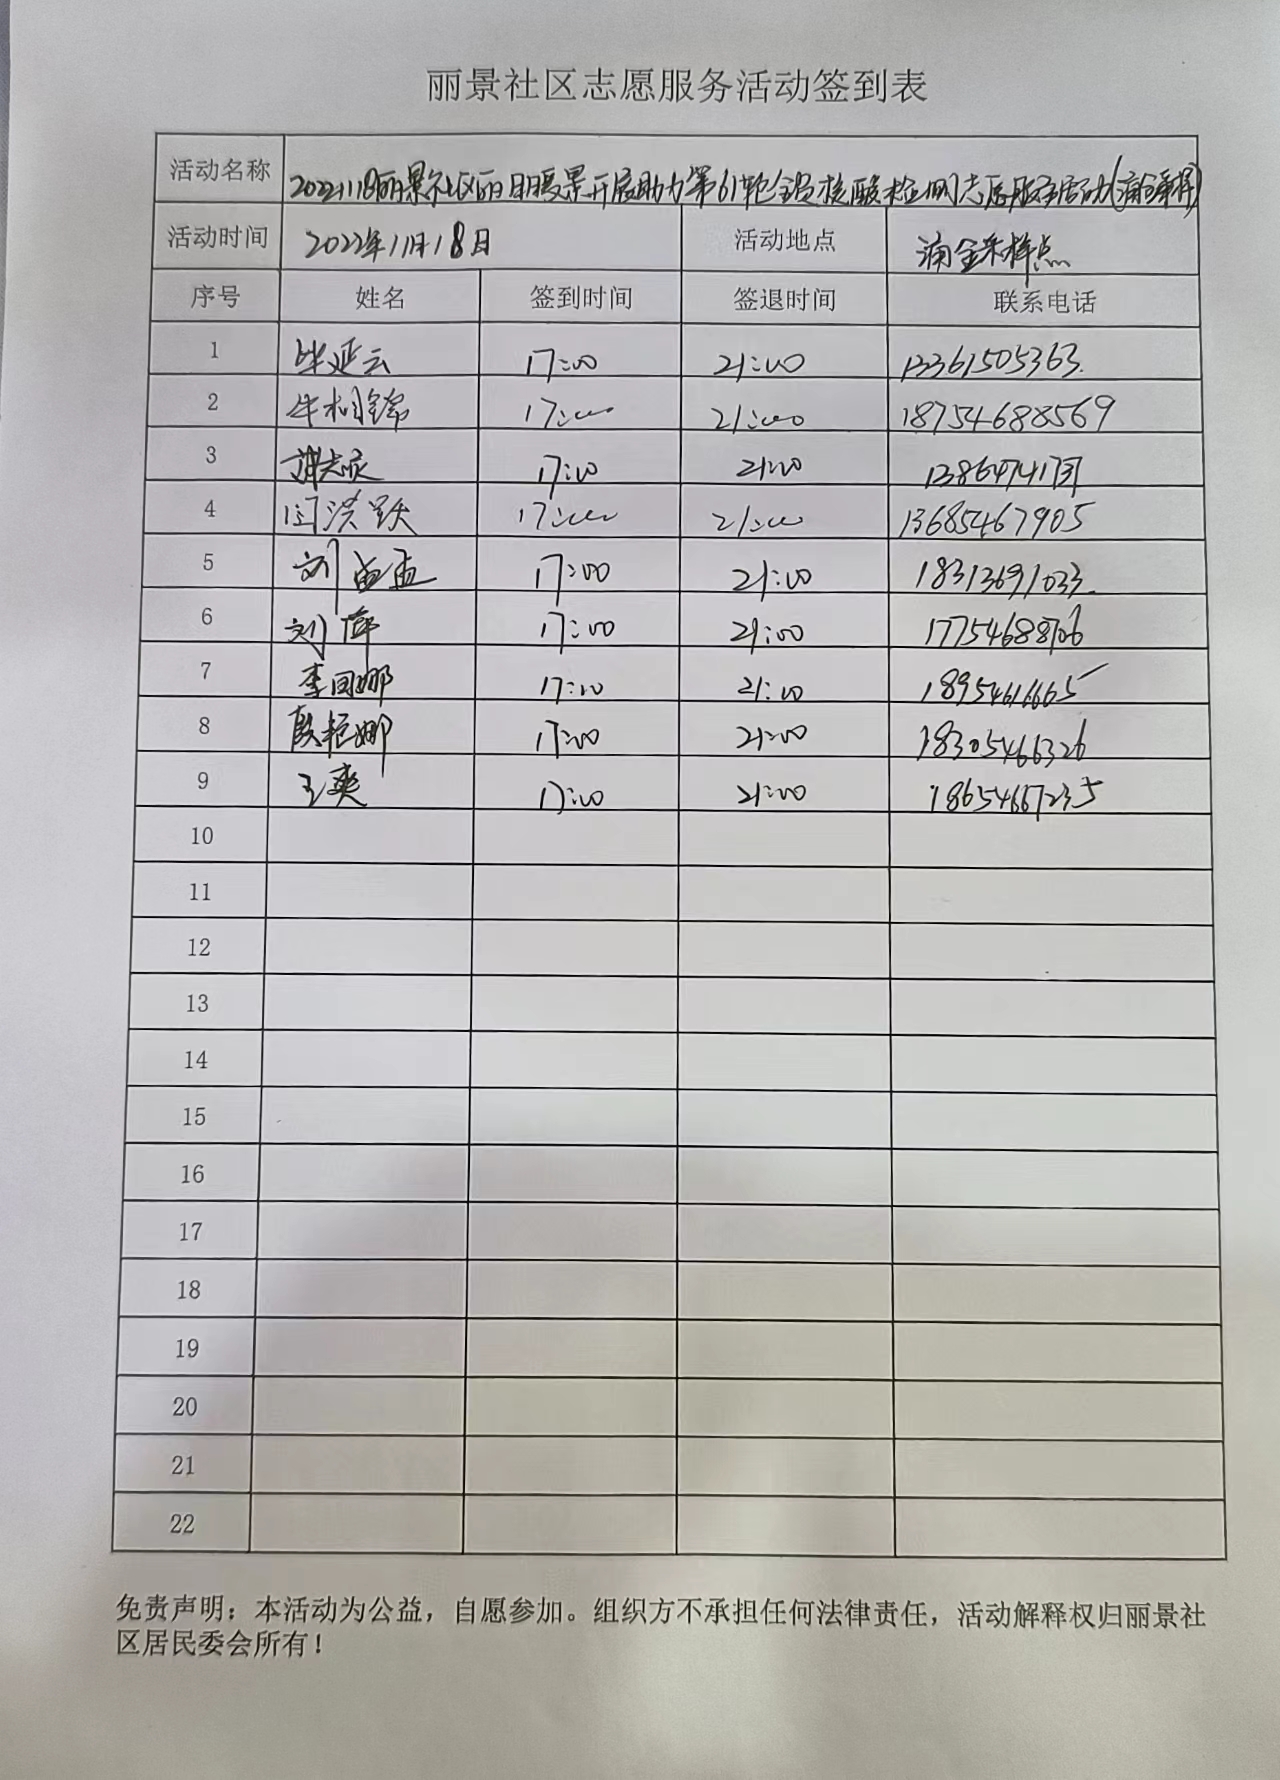 丽景社区志愿服务活动签到表
活动名称 2022.11.18丽景社区丽日暖景开展助力第61轮全员核酸检测志愿服务活动
活动时间 2022年11月18日 活动地点 浦金采样点
序号 姓名 签到时间 签退时间 联系电话
1 毕延云 17:00 21:00 13361505363
2 牛相锦 17:00 21:00 18754688569
3 17:00 21:00
4 闫洪跃 17:00 21:00 13685467905
5 刘孟孟 17:00 21:00 18313691033
6 刘萍 17:00 21:00 17754688706
7 李囡娜 17:00 21:00 18954616665
8 殷艳娜 17:00 21:00 18305466326
9 王爽 17:00 21:00 18654667235
10
11
12
13
14
15
16
17
18
19
20
21
22
免责声明：本活动为公益，自愿参加。组织方不承担任何法律责任，活动解释权归丽景社
区居民委会所有！